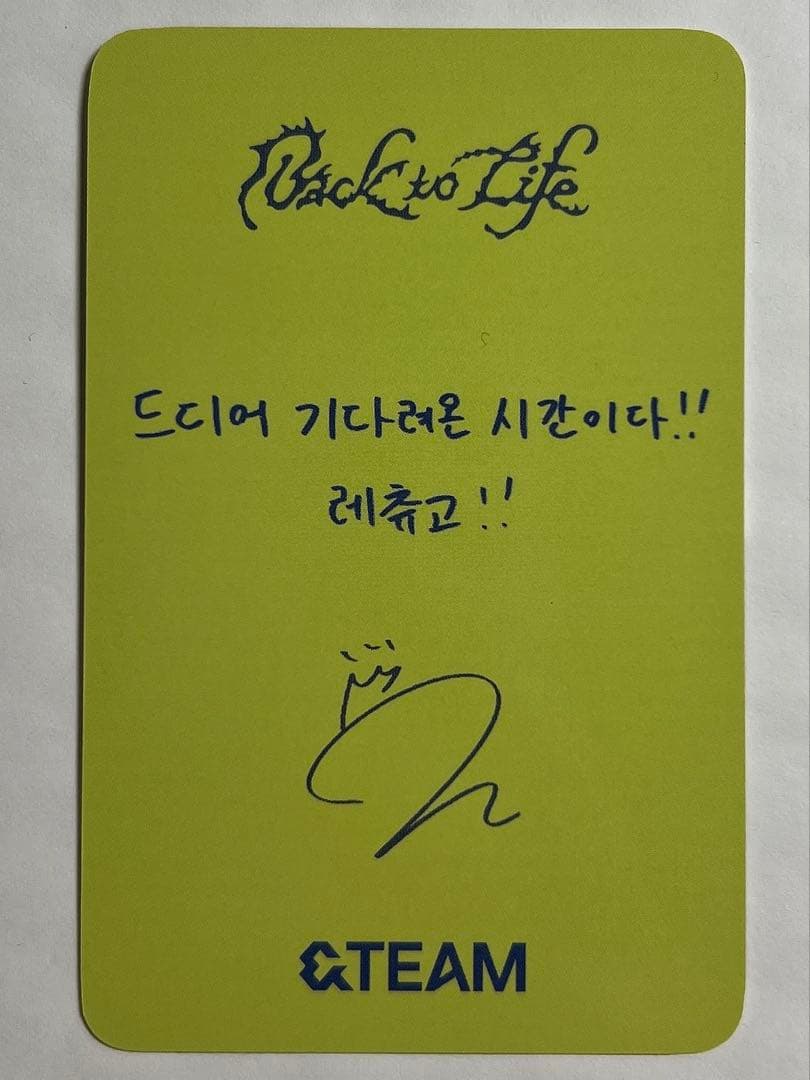 Back to Life
드디어 기다려온 시간이다!!
레츄고!!
&TEAM